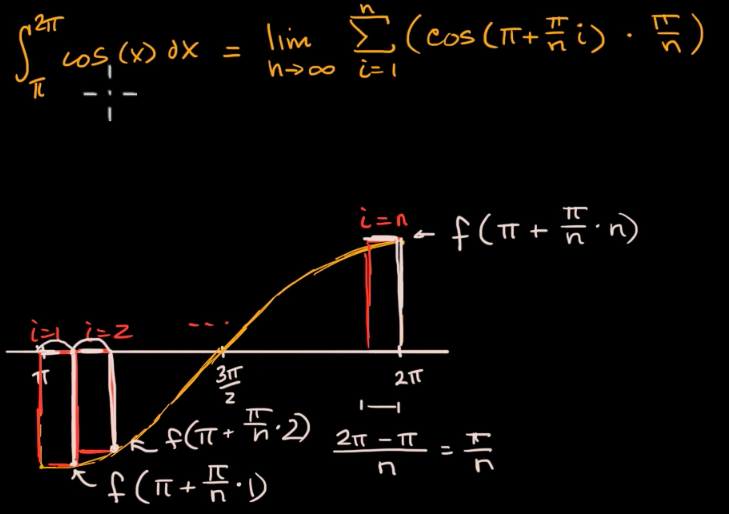 ∫_π^{2π} cos(x) dx = lim_{n→∞} Σ_{i=1}^{n} (cos(π + π/n i) · π/n)
i=n
← f(π + π/n · n)
i=1 i=2 ...
π 3π/2 2π
f(π + π/n · 2)
(2π - π)/n = π/n
f(π + π/n · 1)